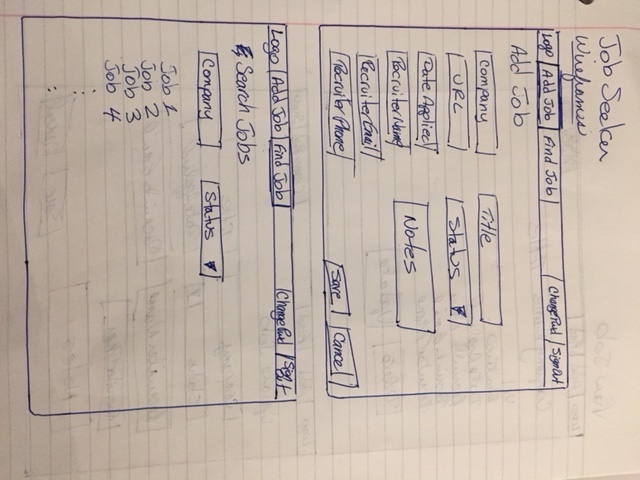 Job Seeker
Wireframes
Logo Add Job Find Job Change Pwd Sign Out
Add Job
Company Title
URL Status
Date Applied
Recruiter Name Notes
Recruiter Email
Recruiter Phone Save Cancel
Logo Add Job Find Job Change Pwd Sign Out
Search Jobs
Company Status
Job 1
Job 2
Job 3
Job 4